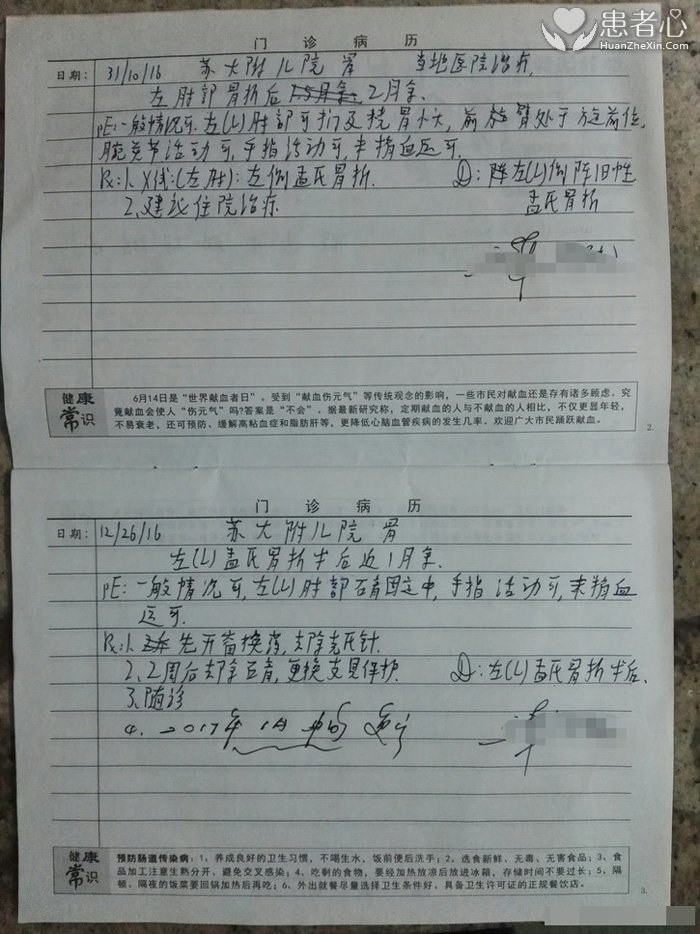 患者心
HuanZheXin.Com
门 诊 病 历
日期: 31/10/16 苏大附儿院 骨 当地医院治疗,
左肘部骨折后 2月余.
PE: 一般情况可. 左(L)肘部可扪及桡骨小头, 前臂处于旋前位,
腕关节活动可, 手指活动可, 末梢血运可.
Rx: 1. X线: (左肘): 左侧孟氏骨折. D: 左(L)侧陈旧性
2、建议住院治疗. 孟氏骨折
健康常识
6月14日是“世界献血者日”。受到“献血伤元气”等传统观念的影响，一些市民对献血还是存有诸多顾虑。究
竟献血会使人“伤元气”吗?答案是“不会”。据最新研究称，定期献血的人与不献血的人相比，不仅更显年轻，
不易衰老，还可预防、缓解高粘血症和脂肪肝等，更降低心脑血管疾病的发生几率。欢迎广大市民踊跃献血。
2.
门 诊 病 历
日期: 12/26/16 苏大附儿院 骨
左(L)孟氏骨折术后近1月余.
PE: 一般情况可, 左(L)肘部石膏固定中, 手指活动可, 末梢血
运可.
Rx: 1. 先开窗换药, 去除克氏针.
2、2周后去除石膏, 更换支具保护. D: 左(L)孟氏骨折术后.
3、随诊
4. 2017年1月
健康常识
预防肠道传染病：1，养成良好的卫生习惯，不喝生水，饭前便后洗手；2、选食新鲜、无毒、无害食品；3、食
品加工注意生熟分开、避免交叉感染；4、吃剩的食物，要经加热放凉后放进冰箱，存储时间不要过长；5、隔
顿、隔夜的饭菜要回锅加热后再吃；6、外出就餐尽量选择卫生条件好、具备卫生许可证的正规餐饮店。
3.